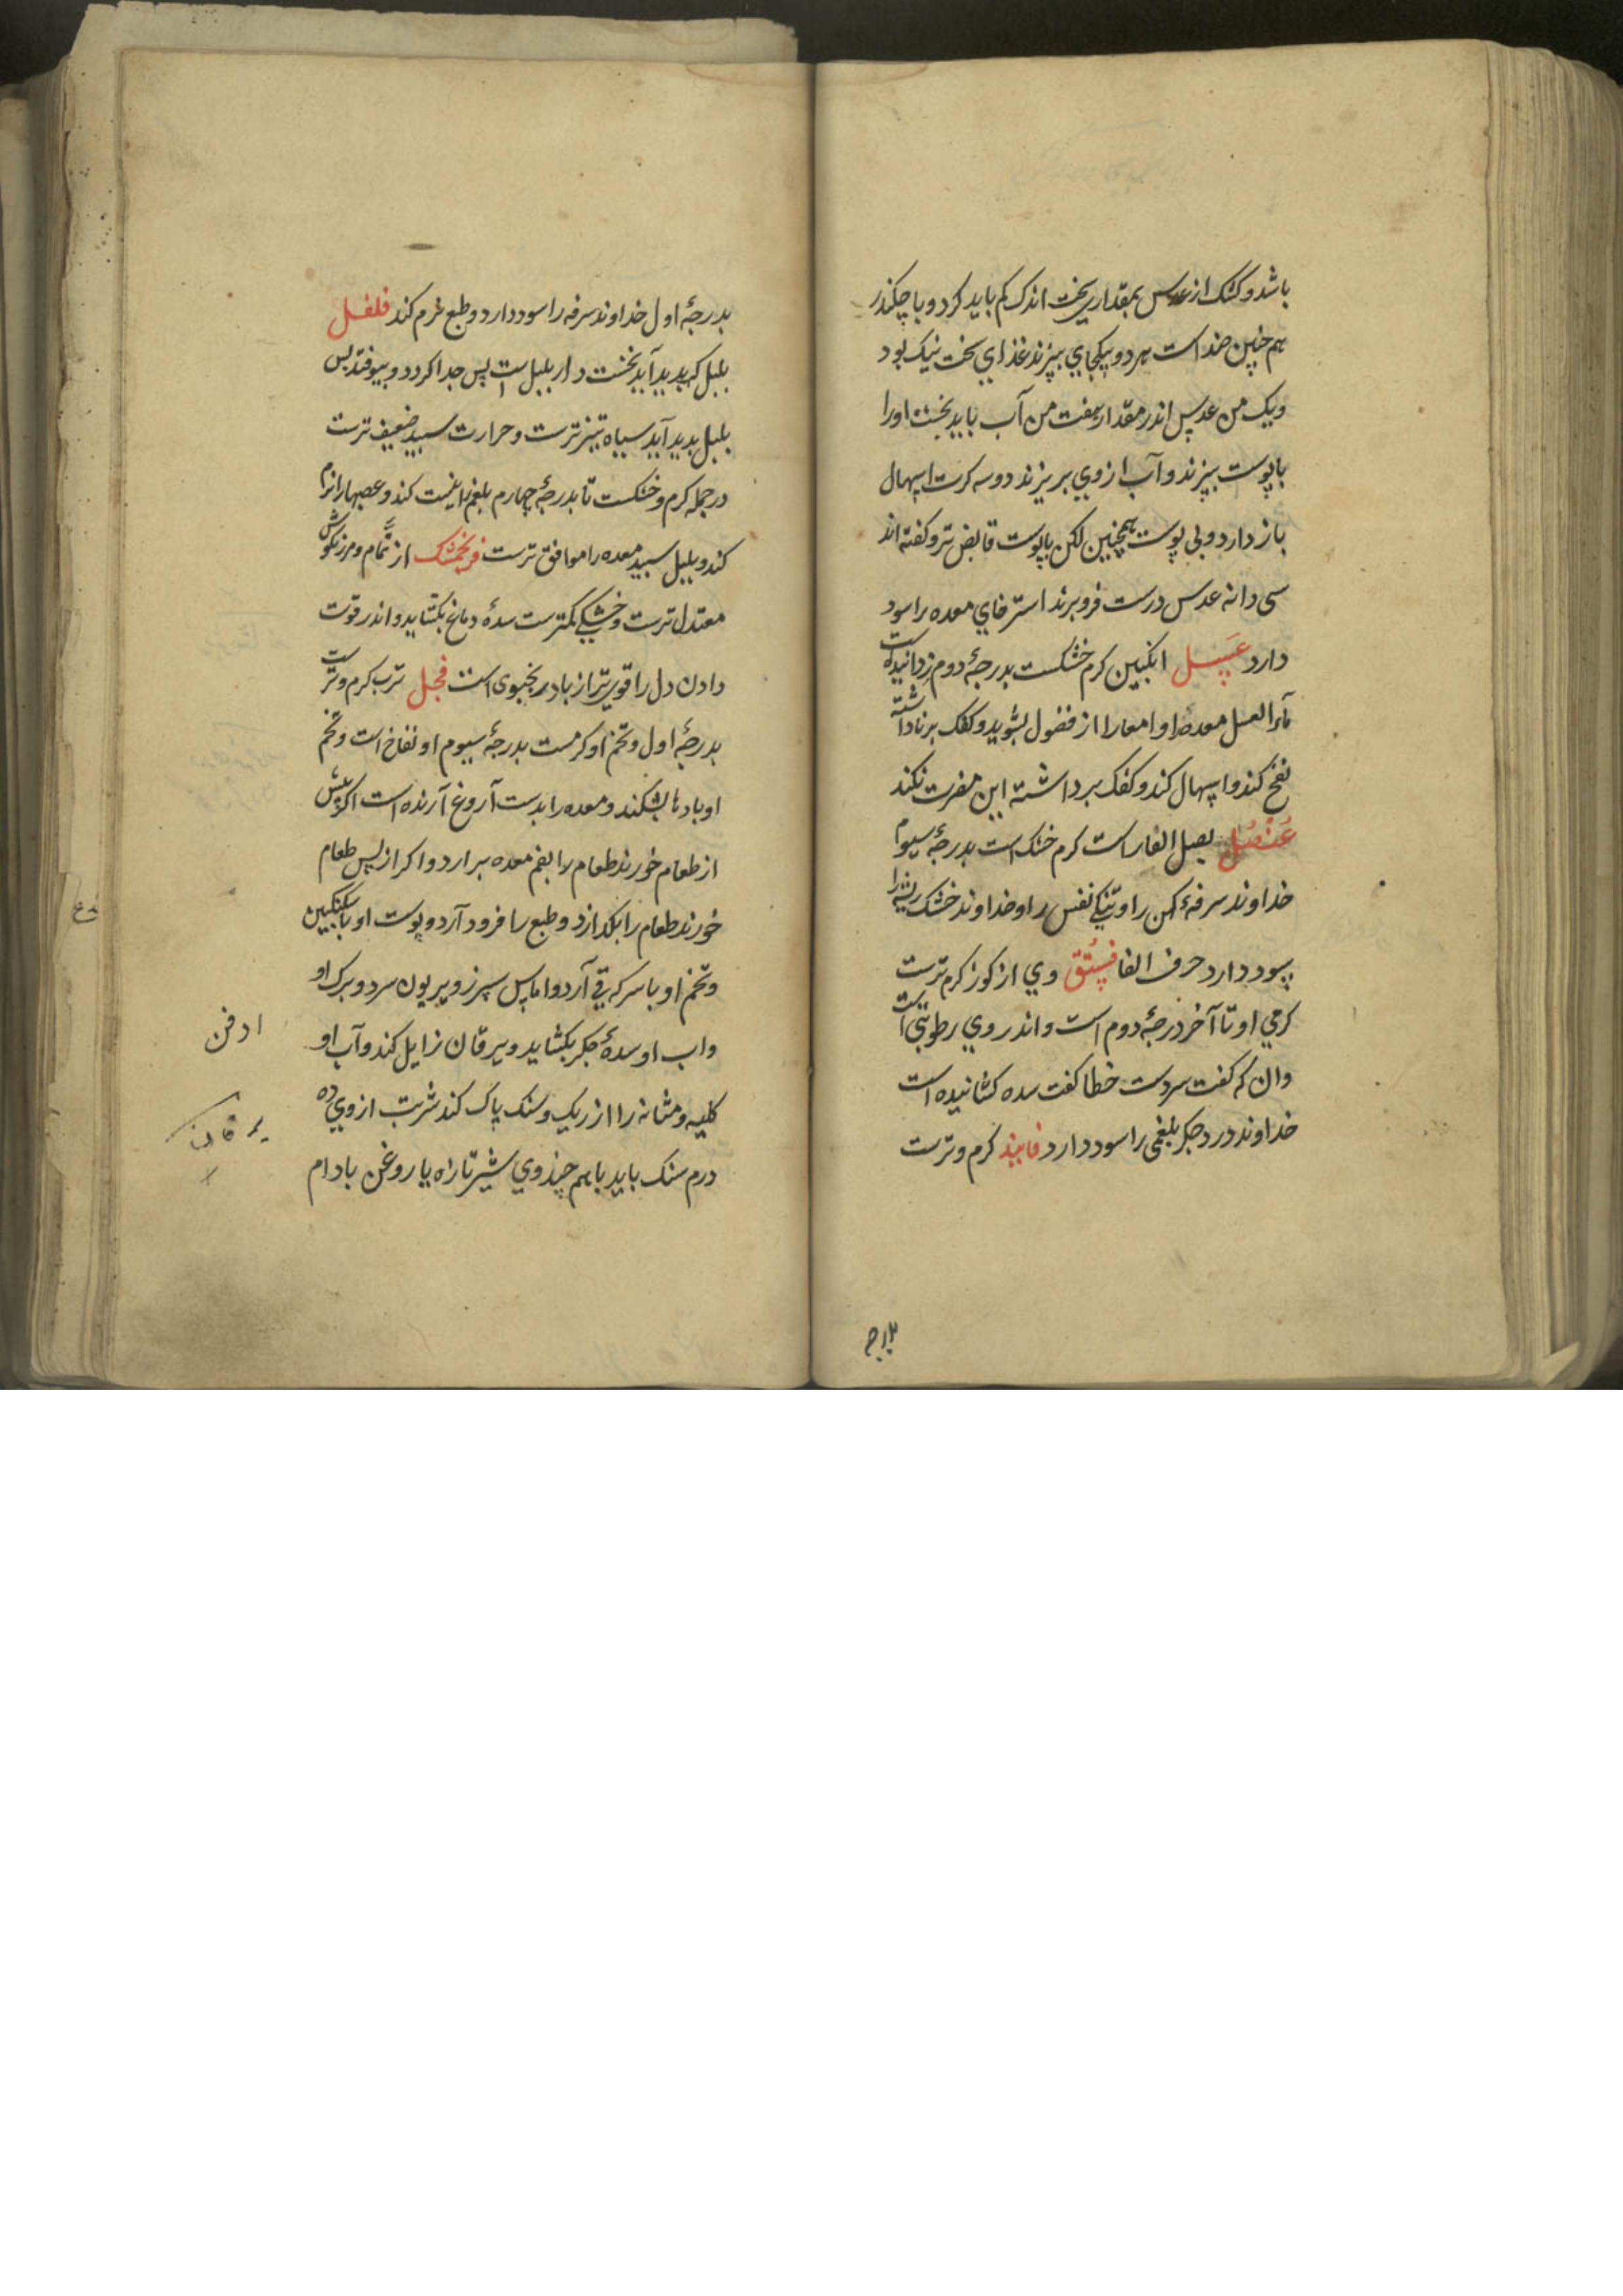 باشد و کشک از عدس بمقداری سخت اندک کم باید کرد و با چکندر
هم چنین ضد است هر دو بیکجای بپزند غذای سخت نیک بود
و یک من عدس اندر مقدار هفت من آب باید پخت او را
با پوست بپزند و آب از وی بریزند دو سه کرت اسهال
باز دارد و بی پوست همچنین لکن با پوست قابض تر و کفته اند
سی دانه عدس درست فرو برند استرخای معده را سود
دارد عسل انکبین کرم خشکست بدرجهٔ دوم زدانیده است
ماء العسل معده او امعا را از فضول بشوید و کفک برناداشته
نفخ کند و اسهال کند و کفک برداشته این مضرت نکند
عنصل بصل الفار است کرم خشک است بدرجهٔ سیوم
خداوند سرفهٔ کهن را و تنکی نفس را و خداوند خشک ریشه را
سود دارد حرف الفا فستق وی از کوز کرم ترست
کرمی او تا آخر درجهٔ دوم است و اندر وی رطوبتی است
وان که کفت سردست خطا کفت سده کشانیده است
خداوند درد جکر بلغمی را سود دارد فانیذ کرم و ترست
بدرجهٔ اول خداوند سرفه را سود دارد و طبع نرم کند فلفل
بلبل که پدید آید نخست دار بلبل است پس جدا کردد و بیوفتد پس
بلبل پدید آید سیاه تیزترست و حرارت سپید ضعیف ترست
در جمله کرم و خشکست تا بدرجهٔ چهارم بلغم را نیست کند و عصبها را نرم
کند و بلبل سپید معده را موافق ترست فرنجمشک از نمّام و مرزنکوش
معتدل ترست و خشکی کمترست سدهٔ دماغ بکشاید و اندر قوت
دادن دل را قوی تر از بادرنجبوی است فجل ترب کرم و ترست
بدرجهٔ اول و تخم او کرمست بدرجهٔ سیوم او نفاخ است و تخم
او بادها بشکند و معده را بدست آروغ آرنده است اکر پیش
از طعام خورند طعام را بفم معده برارد و اکر از پس طعام
خورند طعام را بکدازد و طبع را فرود آرد و پوست او با سکنکبین
و تخم او با سرکه قی آرد و اماس سپرز و بیریون سرد و برک او
و اب او سدهٔ جکر بکشاید و یرقان زایل کند و آب او
کلیه و مثانه را از ریک و سنک پاک کند شربت از وی ده
درم سنک باید با هم چند وی شیر تازه یا روغن بادام
یرقان